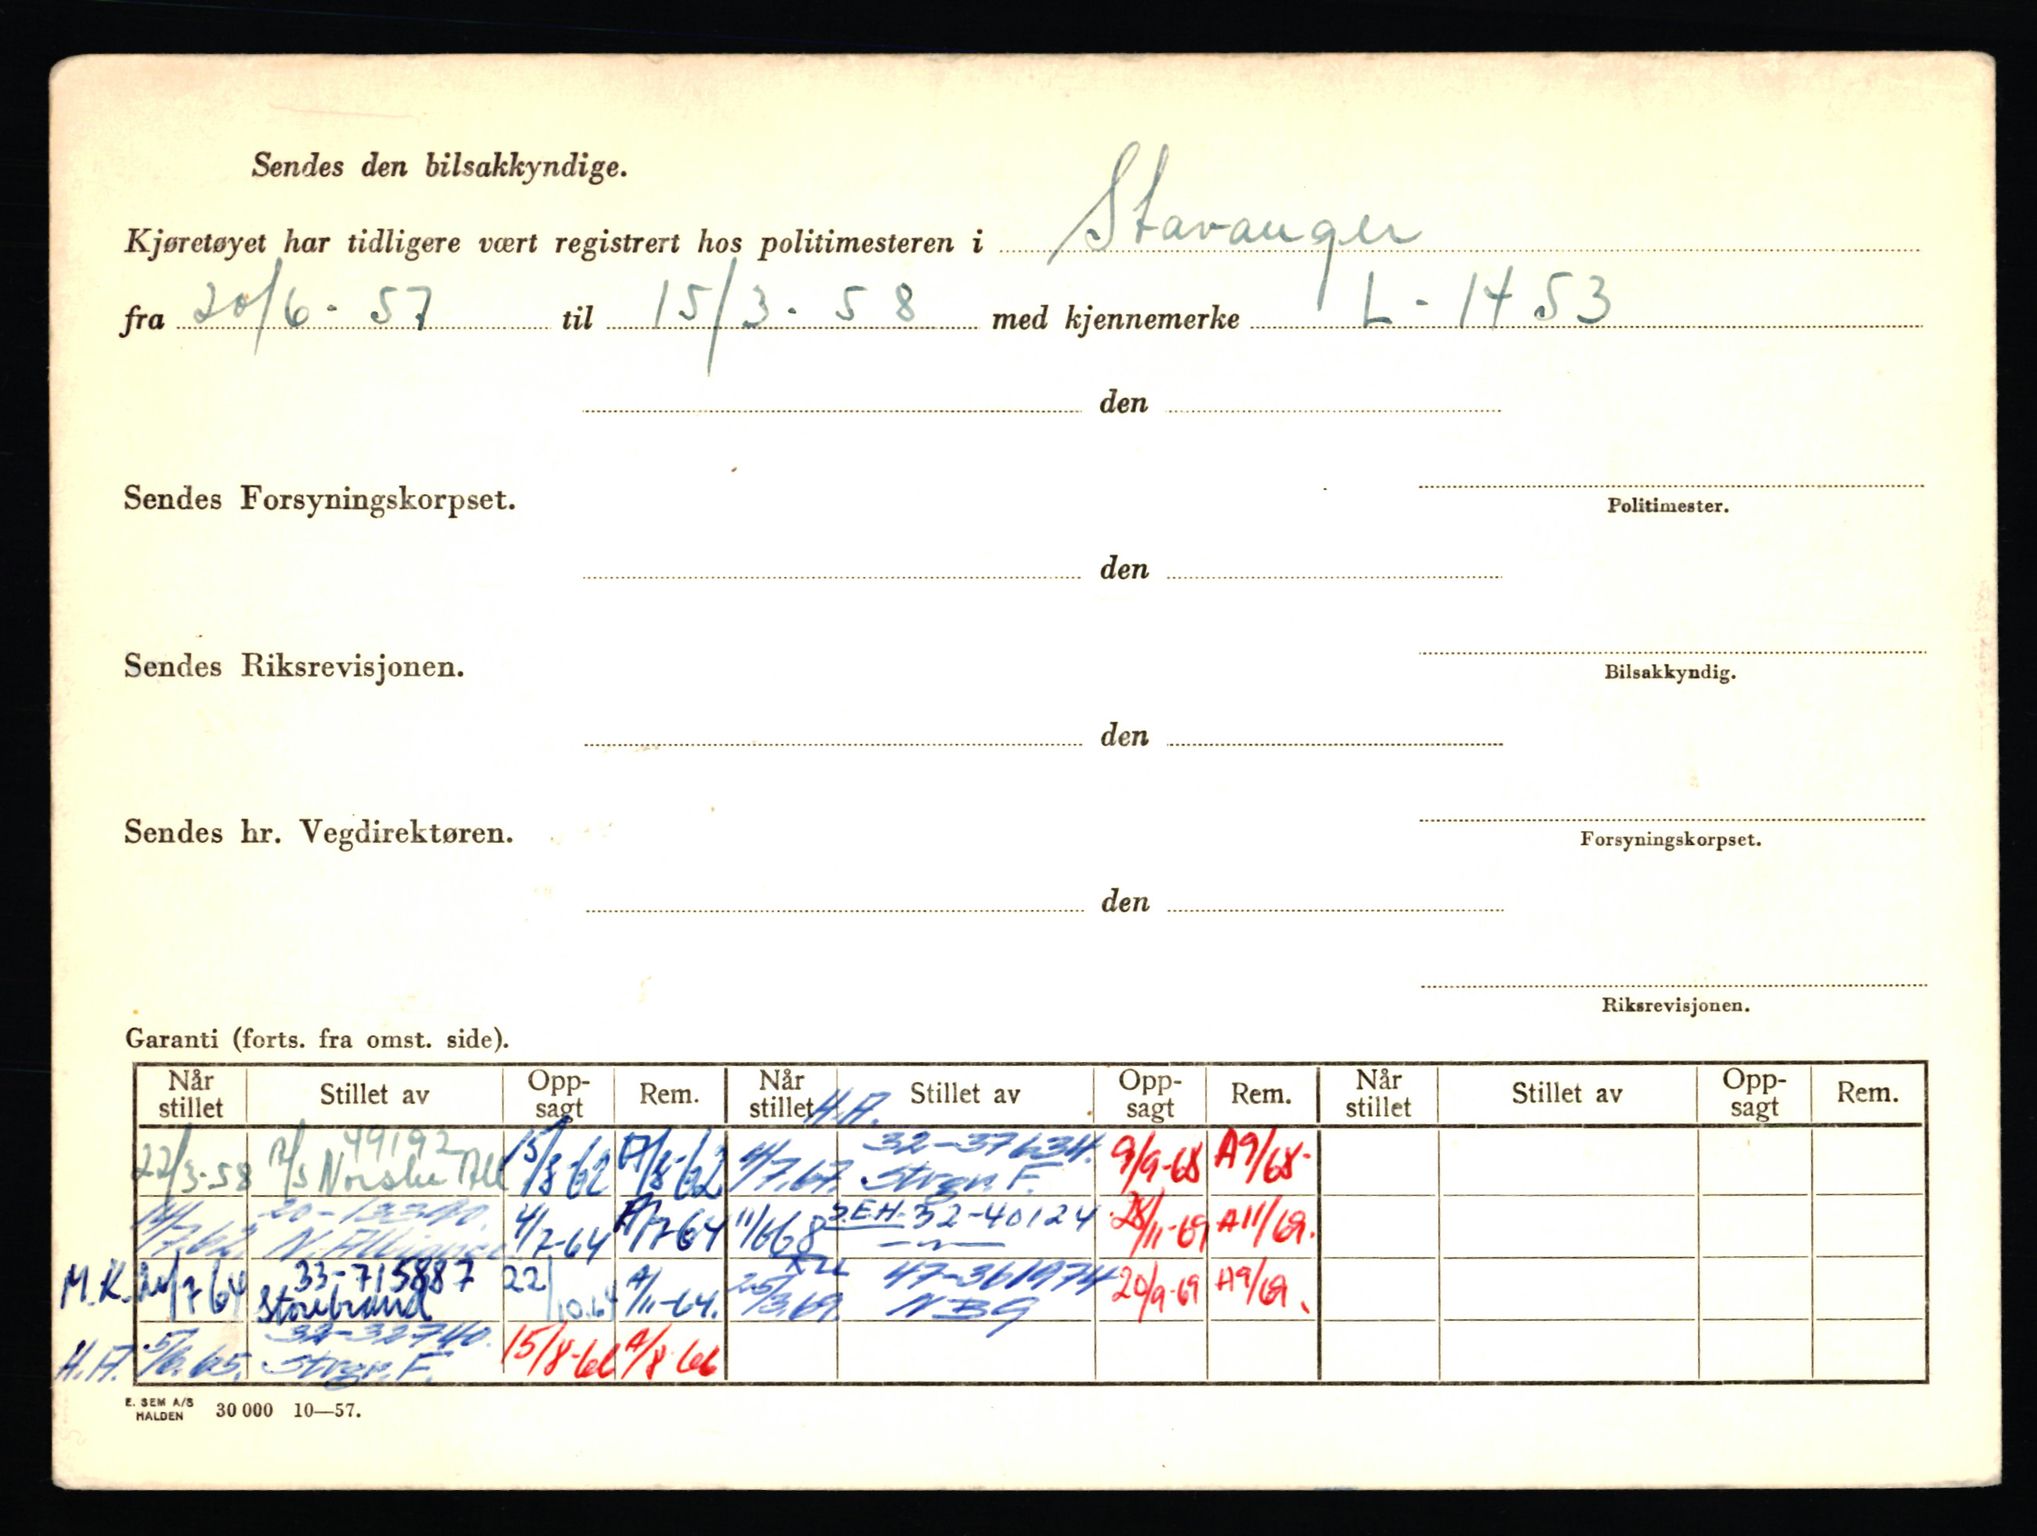 Sendes den bilsakkyndige.
Kjøretøyet har tidligere vært registrert hos politimesteren i Stavanger
fra 20/6-57 til 15/3-58 med kjennemerke L-1453
den
Sendes Forsyningskorpset.
Politimester.
den
Sendes Riksrevisjonen.
Bilsakkyndig.
den
Sendes hr. Vegdirektøren.
Forsyningskorpset.
den
Riksrevisjonen.
Garanti (forts. fra omst. side).
Når stillet Stillet av Opp-sagt Rem. Når stillet Stillet av Opp-sagt Rem. Når stillet Stillet av Opp-sagt Rem.
H.A.
49192 32-37634.
22/3-58 A/S Norske All 15/8-62 A/8-62 4/7.67. Strgr. F. 9/9-68 A9/68-
20-13340. S.E.H. 32-40124
14/7.62. N. Alliance 4/7-64 A/7-64 11/668 28/11-69 A11/69.
33-715887 47-361974
M.K. 20/7 64 Storebrand 22/10.64 A/11-64. 25/3.69. NBG 20/9-69 A9/69.
32-32740.
H.A. 5/6.65. Strgr. F. 15/8-66 A/8-66
E. SEM A/S
HALDEN 30 000 10—57.